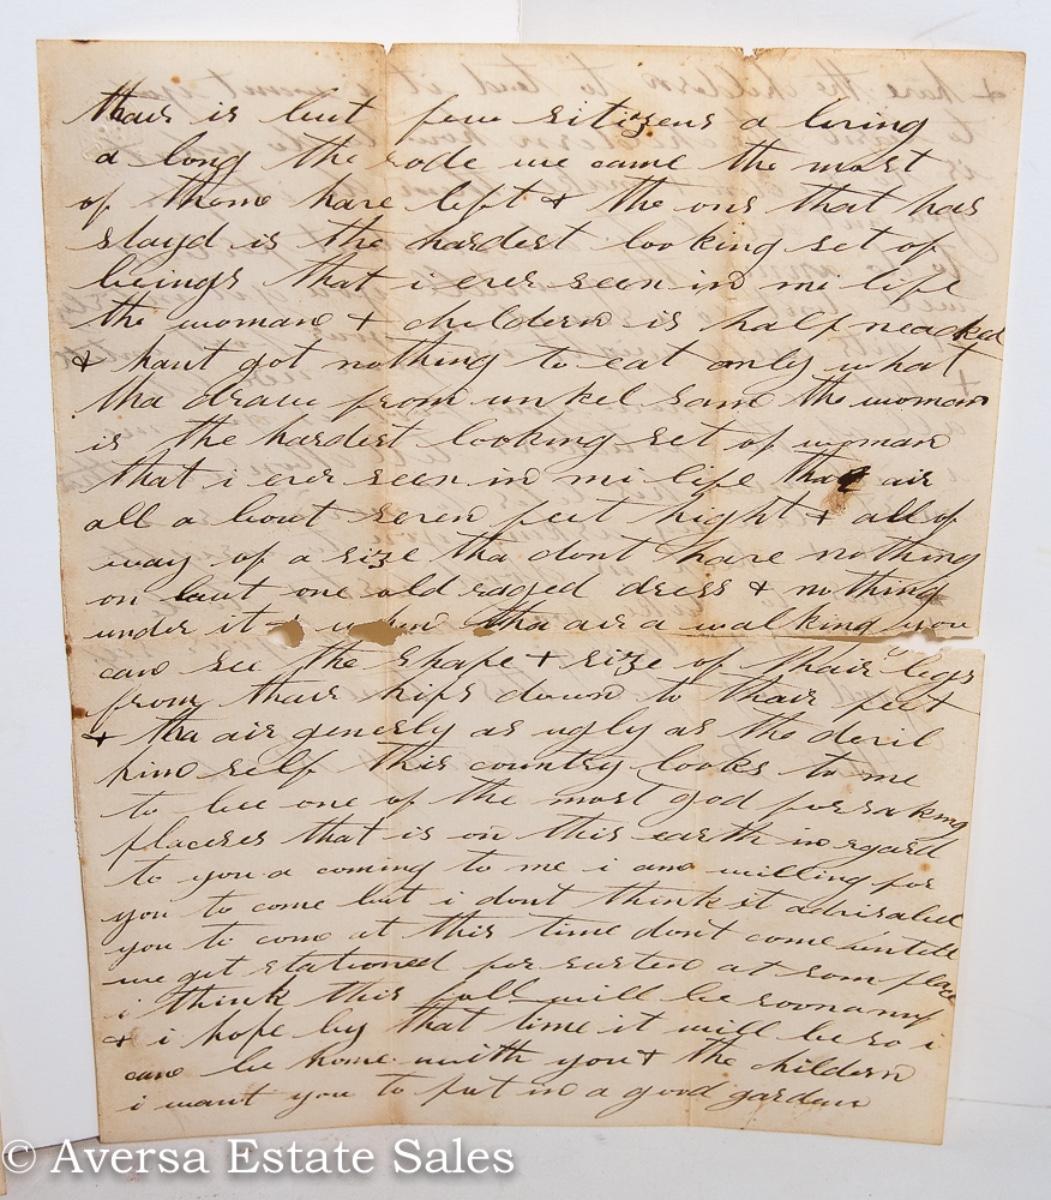 thair is but few sitizens a living
a long the rode we came the most
of theme have left & the ons that has
stayd is the hardest looking set of
beings that i ever seen in mi life
the womane & childern is half neacked
& haint got nothing to eat only what
tha draw from unkel same the woman
is the hardest looking set of woman
that i ever seen in mi life tha air
all a bout seven feet hight & all of
way of a size tha dont have nothing
on but one old raged dress & nothing
under it & when tha air a walking you
can see the shape & size of thair legs
from thair hips down to thair feet
& tha air generly as ugly as the devil
him self this country looks to me
to bee one of the most god forsaking
placeses that is on this earth in regard
to you a coming to me i am willing for
you to come but i dont think it advisabel
you to come at this time dont come untell
we get stationed for surten at som place
i think this fall will be soon any
& i hope by that time it will be so i
can be home with you & the childern
i want you to put in a good garden
© Aversa Estate Sales